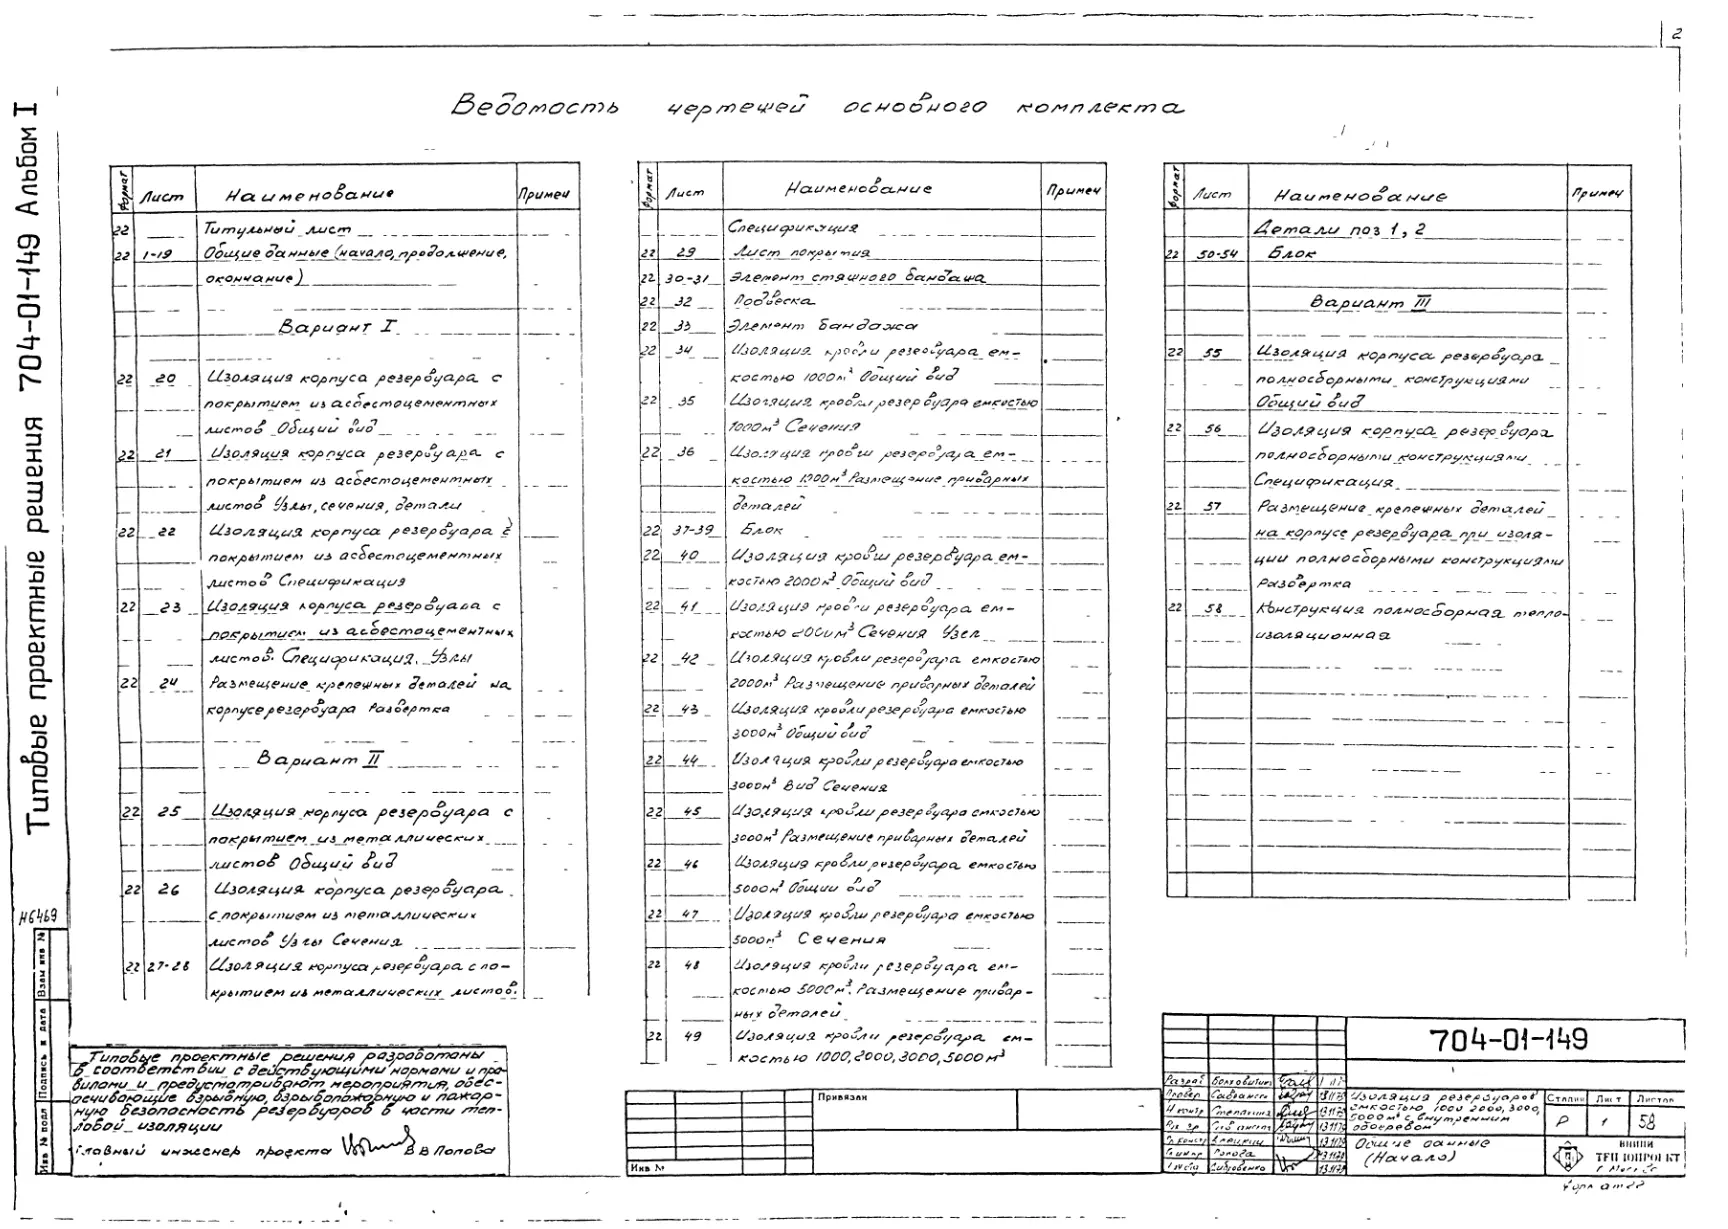 2
Типовые проектные решения 704-01-149 Альбом I
Ведомость чертежей основного комплекта
Формат Лист Наименование Примеч
22 Титульный лист
22 1-19 Общие данные (начало, продолжение,
окончание)
Вариант I
22 20 Изоляция корпуса резервуара с
покрытием из асбестоцементных
листов Общий вид
22 21 Изоляция корпуса резервуара с
покрытием из асбестоцементных
листов Узлы, сечения, детали
22 22 Изоляция корпуса резервуара с
покрытием из асбестоцементных
листов Спецификация
22 23 Изоляция корпуса резервуара с
покрытием из асбестоцементных
листов. Спецификация. Узлы
22 24 Размещение крепежных деталей на
корпусе резервуара Развертка
Вариант II
22 25 Изоляция корпуса резервуара с
покрытием из металлических
листов Общий вид
22 26 Изоляция корпуса резервуара
с покрытием из металлических
листов Узлы Сечения
22 27-28 Изоляция корпуса резервуара с по-
крытием из металлических листов.
Формат Лист Наименование Примеч
Спецификация
22 29 Лист покрытия
22 30-31 Элемент стяжного бандажа
22 32 Подвеска
22 33 Элемент бандажа
22 34 Изоляция кровли резервуара ем-
костью 1000м³ Общий вид
22 35 Изоляция кровли резервуара емкостью
1000м³ Сечения
22 36 Изоляция кровли резервуара ем-
костью 1000м³ Размещение приварных
деталей
22 37-39 Блок
22 40 Изоляция кровли резервуара ем-
костью 2000м³ Общий вид
22 41 Изоляция кровли резервуара ем-
костью 2000м³ Сечения Узел
22 42 Изоляция кровли резервуара емкостью
2000м³ Размещение приварных деталей
22 43 Изоляция кровли резервуара емкостью
3000м³ Общий вид
22 44 Изоляция кровли резервуара емкостью
3000м³ Вид Сечения
22 45 Изоляция кровли резервуара емкостью
3000м³ Размещение приварных деталей
22 46 Изоляция кровли резервуара емкостью
5000м³ Общий вид
22 47 Изоляция кровли резервуара емкостью
5000м³ Сечения
22 48 Изоляция кровли резервуара ем-
костью 5000м³. Размещение привар-
ных деталей
22 49 Изоляция кровли резервуара ем-
костью 1000,2000,3000,5000м³
Формат Лист Наименование Примеч
Детали поз 1, 2
22 50-54 Блок
Вариант III
22 55 Изоляция корпуса резервуара
полносборными конструкциями
Общий вид
22 56 Изоляция корпуса резервуара
полносборными конструкциями
Спецификация
22 57 Размещение крепежных деталей
на корпусе резервуара при изоля-
ции полносборными конструкциями
Развертка
22 58 Конструкция полносборная тепло-
изоляционная
Н6469
Инв № подл Подпись и дата Взам инв №
Типовые проектные решения разработаны
в соответствии с действующими нормами и пра-
вилами и предусматривают мероприятия, обес-
печивающие взрывную, взрывопожарную и пожар-
ную безопасность резервуаров в части теп-
ловой изоляции
Главный инженер проекта В В Попова
Привязан
Инв №
704-01-149
Изоляция резервуаров
емкостью 1000 2000, 3000,
5000м³ с внутренним
обогревом
Стадия Лист Листов
Р 1 58
Общие данные
(Начало)
ВНИПИ
ТЕПЛОПРОЕКТ
Формат 22